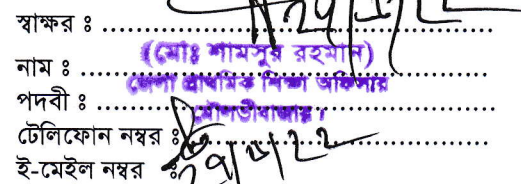 স্বাক্ষর ঃ
(মোঃ শামসুর রহমান)
নাম ঃ
জেলা প্রাথমিক শিক্ষা অফিসার
পদবী ঃ
মৌলভীবাজার।
টেলিফোন নম্বর ঃ
ই-মেইল নম্বর ঃ